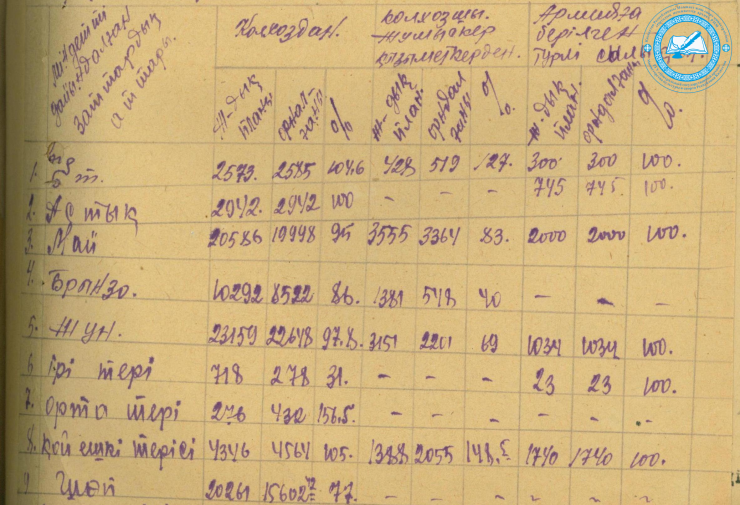 дайындалған
заттардың
аттары.
Колхоздан.
колхозшы.
жұмшакер
қызметкерден.
Армияға
берілген
түрлі
ж-дық план. орындал ғаны %
ж-дық план. орындал ғаны %
ж-дық план. орындалғаны %
1. ет. 2573. 2585 104.6 428 519 127. 300 300 100.
745 745. 100.
2. Астық 2942. 2942 100 - - - 
3. Май 20586 19998 95 3555 3364 83. 2000 2000 100.
4. Брынзо. 10292 8522 86. 1381 548 40 - - -
5. Жүн. 23159 22648 97.8. 3151 2201 69 1034 1034 100.
6 Ірі тері 718 278 31. - - - 23 23 100.
7. Орта тері 276 432 156.5. - - - - - -
8. Қой ешкі терісі 4346 4564 105. 1388 2055 148.5 1740 1740 100.
9 20261 15602 77. - - - - - -